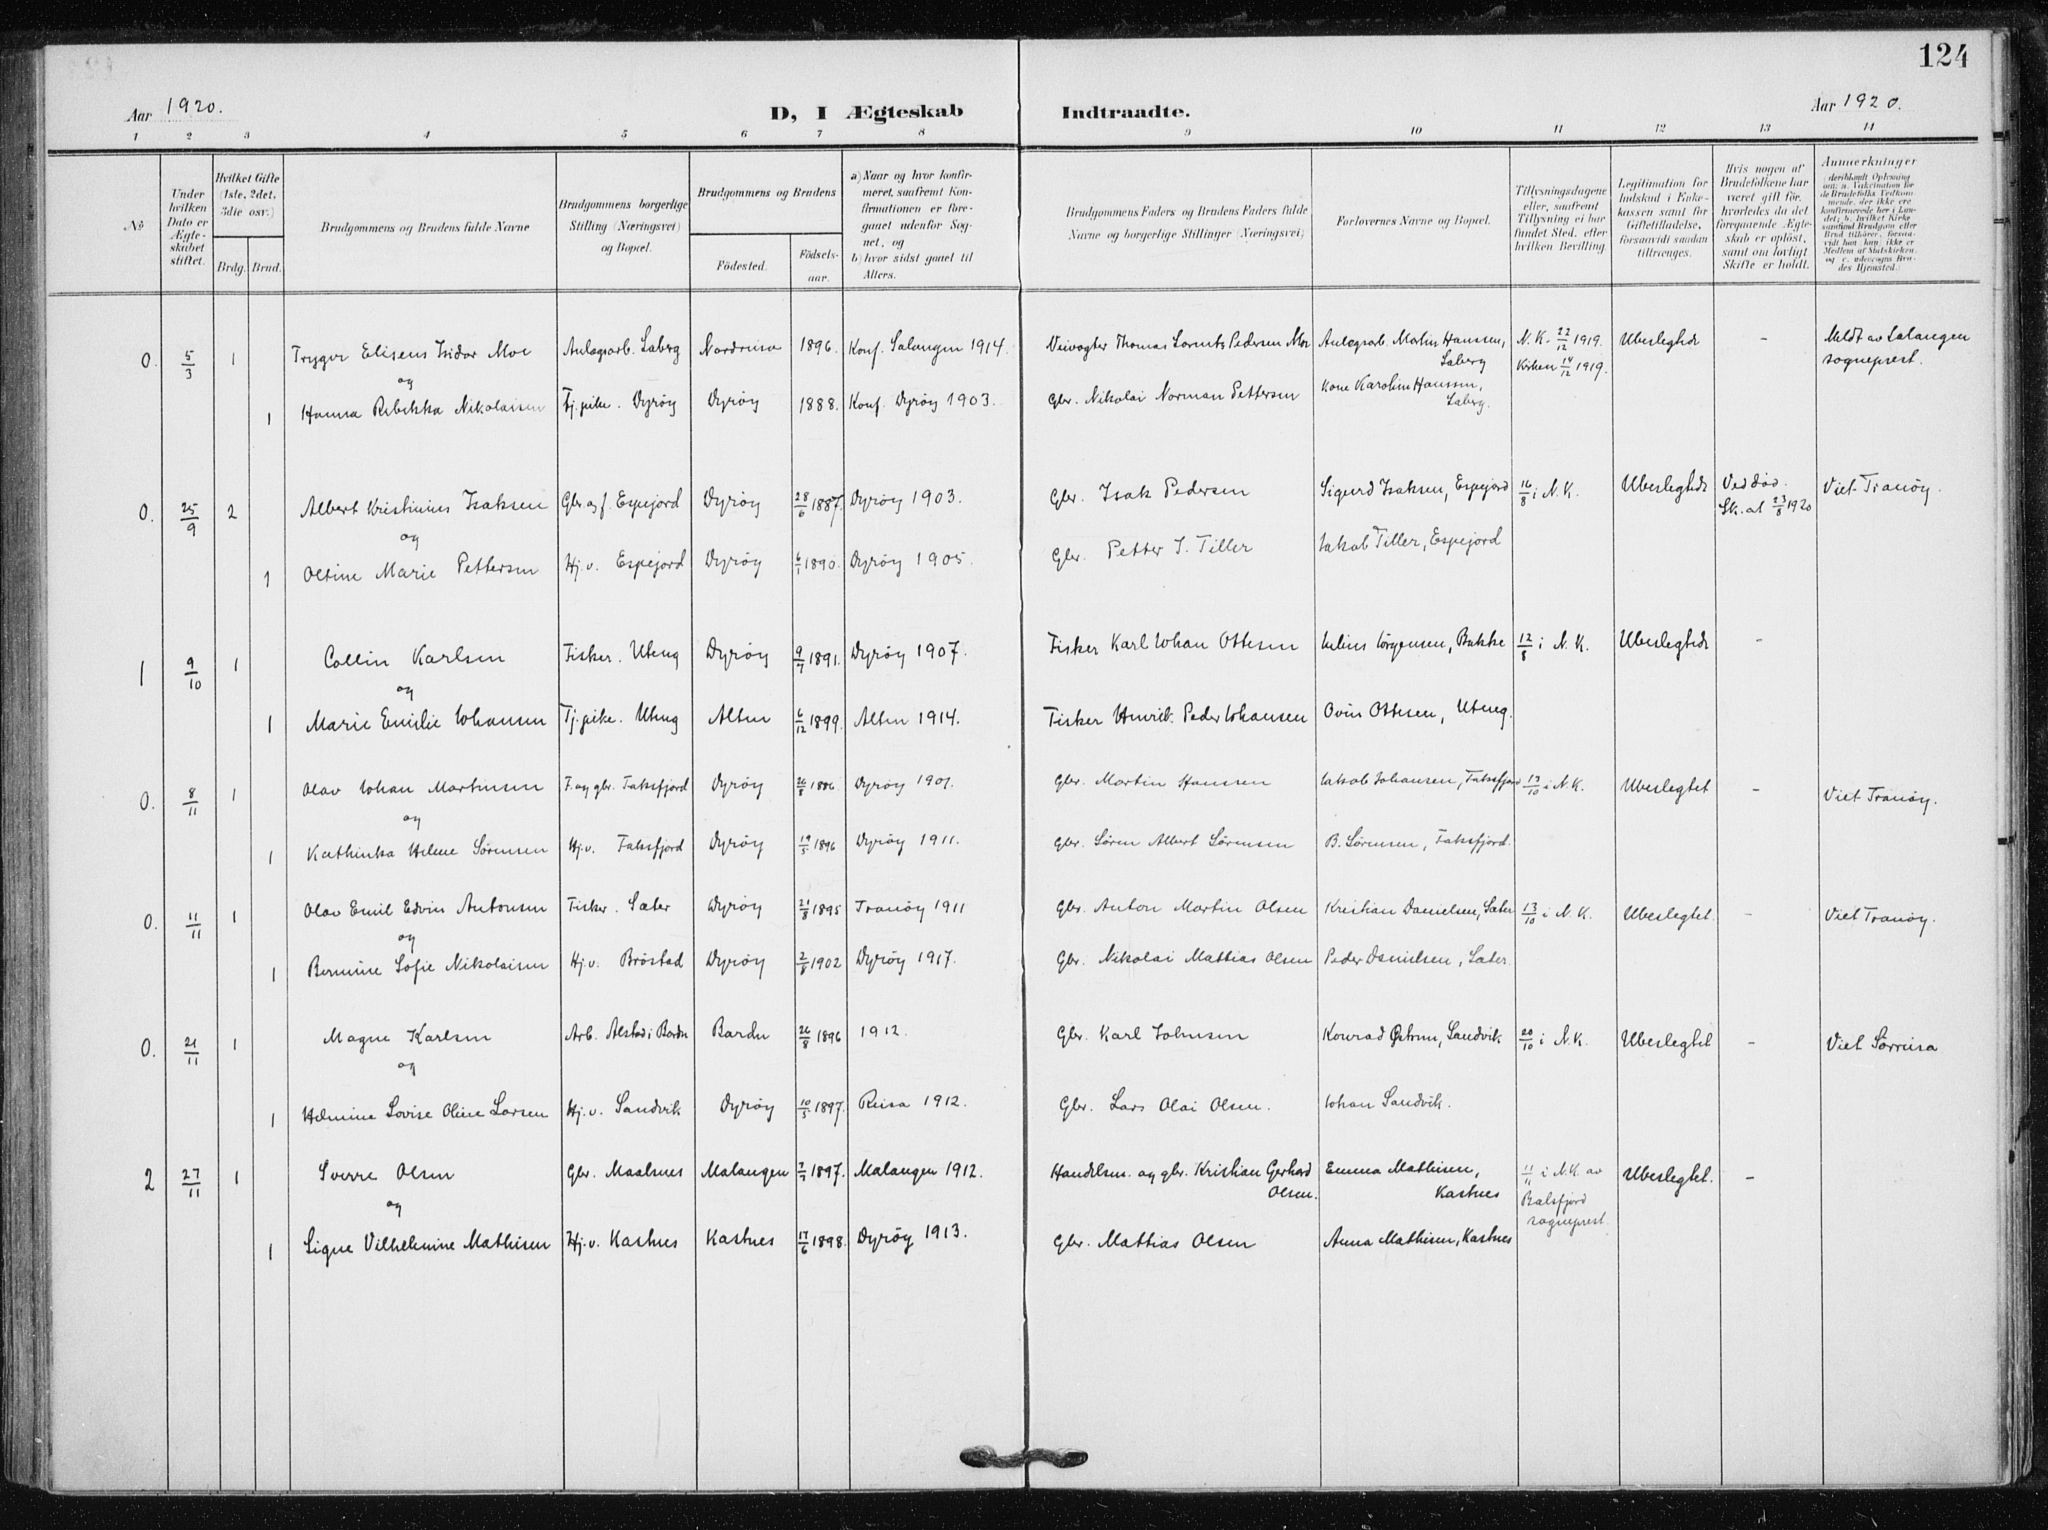 124
Aar 1920.
D, I Ægteskab Indtraadte.
Aar 1920.
1 2 3 4 5 6 7 8 9 10 11 12 13 14
No
Under hvilken Dato er Ægteskabet stiftet.
Hvilket Gifte (1ste, 2det, 3die osv.)
Brdg. Brud.
Brudgommens og Brudens fulde Navne
Brudgommens borgerlige Stilling (Næringsvei) og Bopæl.
Brudgommens og Brudens
Fødested. Fødselsaar.
a) Naar og hvor konfirmeret, saafremt Konfirmationen er foregaaet udenfor Sognet, og
b) hvor sidst gaaet til Alters.
Brudgommens Faders og Brudens Faders fulde Navne og borgerlige Stillinger (Næringsvei)
Forlovernes Navne og Bopæl.
Tillysningsdagene eller, saafremt Tillysning ei har fundet Sted, efter hvilken Bevilling.
Legitimation for Indskud i Enkekassen samt for Giftetilladelse, forsaavidt saadan tiltrænges.
Hvis nogen af Brudefolkene har været gift før, hvorledes da det foregaaende Ægteskab er opløst, samt om lovligt Skifte er holdt.
Anmerkninger (deriblandt Oplysning om: a. Vakcination for de Brudefolks Vedkommende, der ikke ere konfirmerede her i Landet; b. hvilket Kirkesamfund Brudgom eller Brud tilhører, forsaavidt han, hun, ikke er Medlem af Statskirken, og c. udensogns Brudes Hjemsted.)
0. 5/3 1 Trygve Elisens Isidor Moe Anlægsarb. Saberg Nordreisa 1896. Konf. Salangen 1914. Veivogter Thomas Pedersen Moe Anlægsarb. Martin Hanssen, Saberg N. K. 22/12 1919. Ubeslegtede - Meldt av Salangen
Kirken 14/12 1919. sogneprest.
og
1 Hanna Rebekka Nikolaisen Tj.pike. Dyrøy Dyrøy 1888. Konf. Dyrøy 1903. Gbr. Nikolai Norman Pettersen Kone Karolin Hanssen, Saberg.
0. 25/9 2 Albert Kristinius Isaksen Gbr. og f. Espejord Dyrøy 28/6 1887. Dyrøy 1903. Gbr. Isak Pedersen Sigurd Isaksen, Espejord 16/8 i N. K. Ubeslegtede Ved død. Viet Tranøy.
Sk.at 23/8 1920
og
1 Oltine Marie Pettersen Hj.v. Espejord Dyrøy 6/1 1890. Dyrøy 1905. Gbr. Petter J. Tiller Jakob Tiller, Espejord
1 9/10 1 Collin Karlsen Fisker. Uteng Dyrøy 9/7 1891. Dyrøy 1907. Fisker Karl Johan Ottesen Julius Jørgensen, Bakke 12/8 i N. K. Ubeslegtede -
og
1 Marie Emilie Johansen Tj.pike. Uteng Alten 6/12 1899. Alten 1914. Fisker Henrik Peder Johansen Ovin Ottesen, Uteng.
0. 8/11 1 Olav Johan Martinsen F. og gbr. Faksfjord Dyrøy 26/8 1886 Dyrøy 1901. Gbr. Martin Hanssen Jakob Johansen, Faksfjord 13/10 i N. K. Ubeslegtet - Viet Tranøy.
og
1 Kathinka Helene Sørensen Hj.v. Faksfjord Dyrøy 19/5 1896 Dyrøy 1911. Gbr. Søren Albert Sørensen B. Sørensen, Faksfjord.
0. 11/11 1 Olav Emil Edvin Antonsen Fisker. Sæter Dyrøy 21/8 1895 Tranøy 1911 Gbr. Anton Martin Olsen Kristian Danielsen, Sæter 13/10 i N. K. Ubeslegtet. - Viet Tranøy.
og
1 Bermine Sofie Nikolaisen Hj.v. Brøstad Dyrøy 2/8 1902 Dyrøy 1917. Gbr. Nikolai Mattias Olsen Peder Danielsen, Sæter.
0. 21/11 1 Magne Karlsen Arb. Alstad i Bardu Bardu 26/8 1896 1912. Gbr. Karl Johnsen Konrad Østrem, Sandvik 20/10 i N. K. Ubeslegtet - Viet Sørreisa
og
1 Helmine Lovise Oline Larsen Hj.v. Sandvik Dyrøy 10/5 1897. Reisa 1912. Gbr. Lars Olai Olsen. Johan Sandvik.
2 27/11 1 Sverre Olsen Gbr. Maalsnes Malangen 7/7 1897. Malangen 1912. Handelsm. og gbr. Kristian Gerhard Olsen. Emma Mathisen, Kastnes 11/11 i N.K. av Balsfjord sogneprest. Ubeslegtet. -
og
1 Signe Vilhelmine Mathisen Hj.v. Kastnes Kastnes 17/6 1898. Dyrøy 1913. Gbr. Mattias Olsen Anna Mathisen, Kastnes